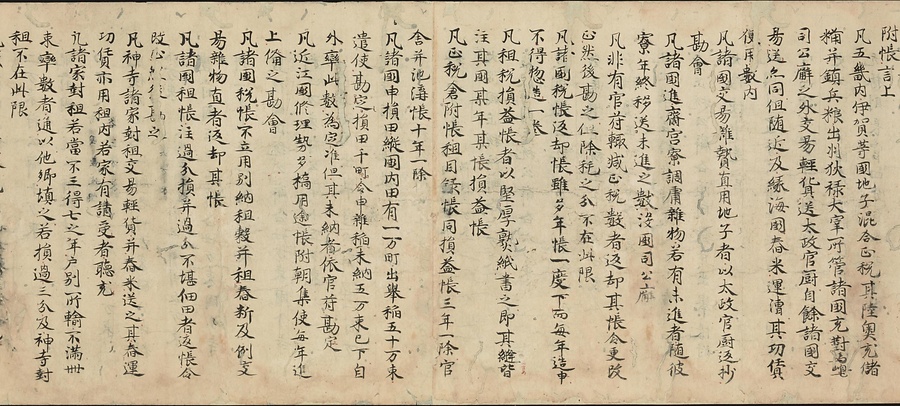 附帳言上
凡五畿内伊賀等國地子混合正税其陸奥充儲
糒并鎮兵粮出羽狄禄大宰所管諸國充對馬嶋
司公廨之外交易輕貨送太政官厨自餘諸國交
易送亦同但随近及縁海國舂米運漕其功賃
便用數内
凡諸國交易雜贄直用地子者以太政官厨返抄
勘會
凡諸國進齋宮寮調庸雜物若有未進者随彼
寮年終移送未進之數没國司公廨
凡非有官符輙減正税數者返却其帳令更改
正然後勘之但除耗之分不在此限
凡諸國税帳返却帳雖多年帳一度下而毎年造申
不得惣造一巻
凡租税損益帳者以堅厚熟紙書之即其縫皆
注其國其年其帳損益帳
凡正税倉附帳租目録帳同損益帳三年一除官
舎并池溝帳十年一除
凡諸國申損田縱國内田有一万町出擧稲五十万束
遣使勘定損田十町令申雜稲未納五万束已下自
外率此數為定准但其未納者依官符勘定
凡近江國修理勢多橋用途帳附朝集使毎年進
上脩之勘會
凡諸國税帳不立用別納租穀并租舂新及例交
易雜物直者返却其帳
凡諸國租帳注過分損并過分不堪佃田者返帳令
改正然後勘之
凡神寺諸家封租交易輕貨并舂米送之其舂運
功賃亦用租内若家有請受者聽充
凡諸家封租若當不三得七之年戸別所輸不滿卌
束率數者通以他郷填之若損過三分及神寺封
租不在此限